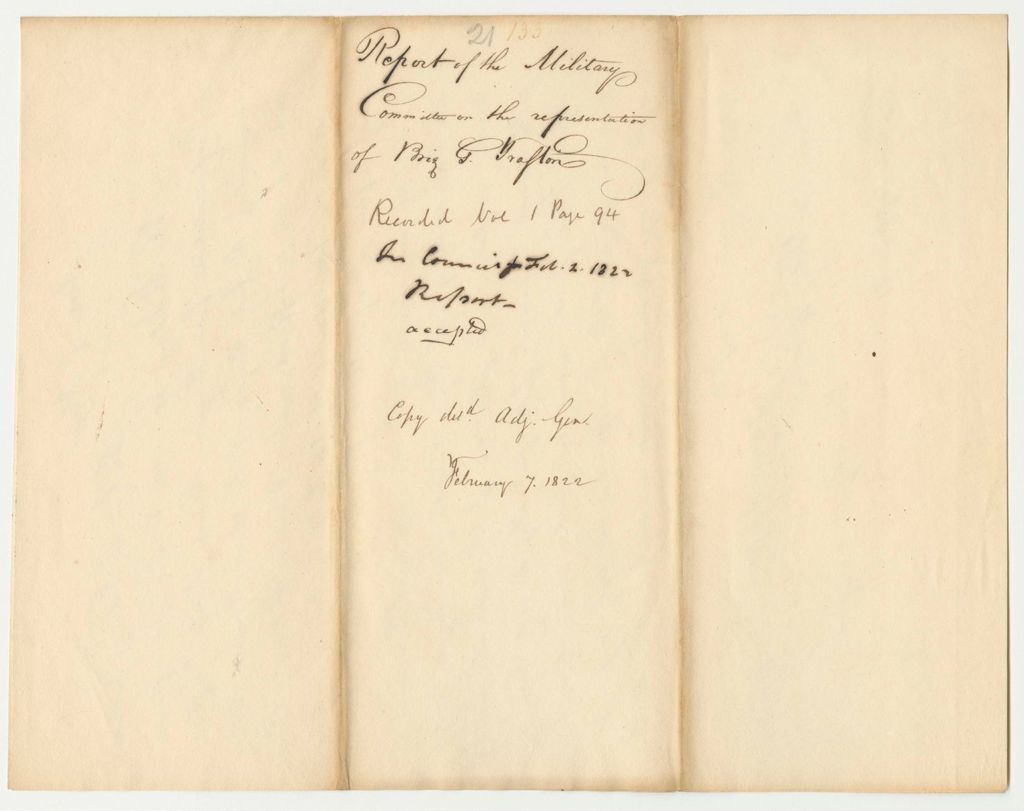 21 133
Report of the Military
Committee on the representation
of Brig G. Trafton
Recorded Vol 1 Page 94
In Council Feb. 2. 1822
Report
accepted
Copy deld. Adj. Gen.
February 7. 1822